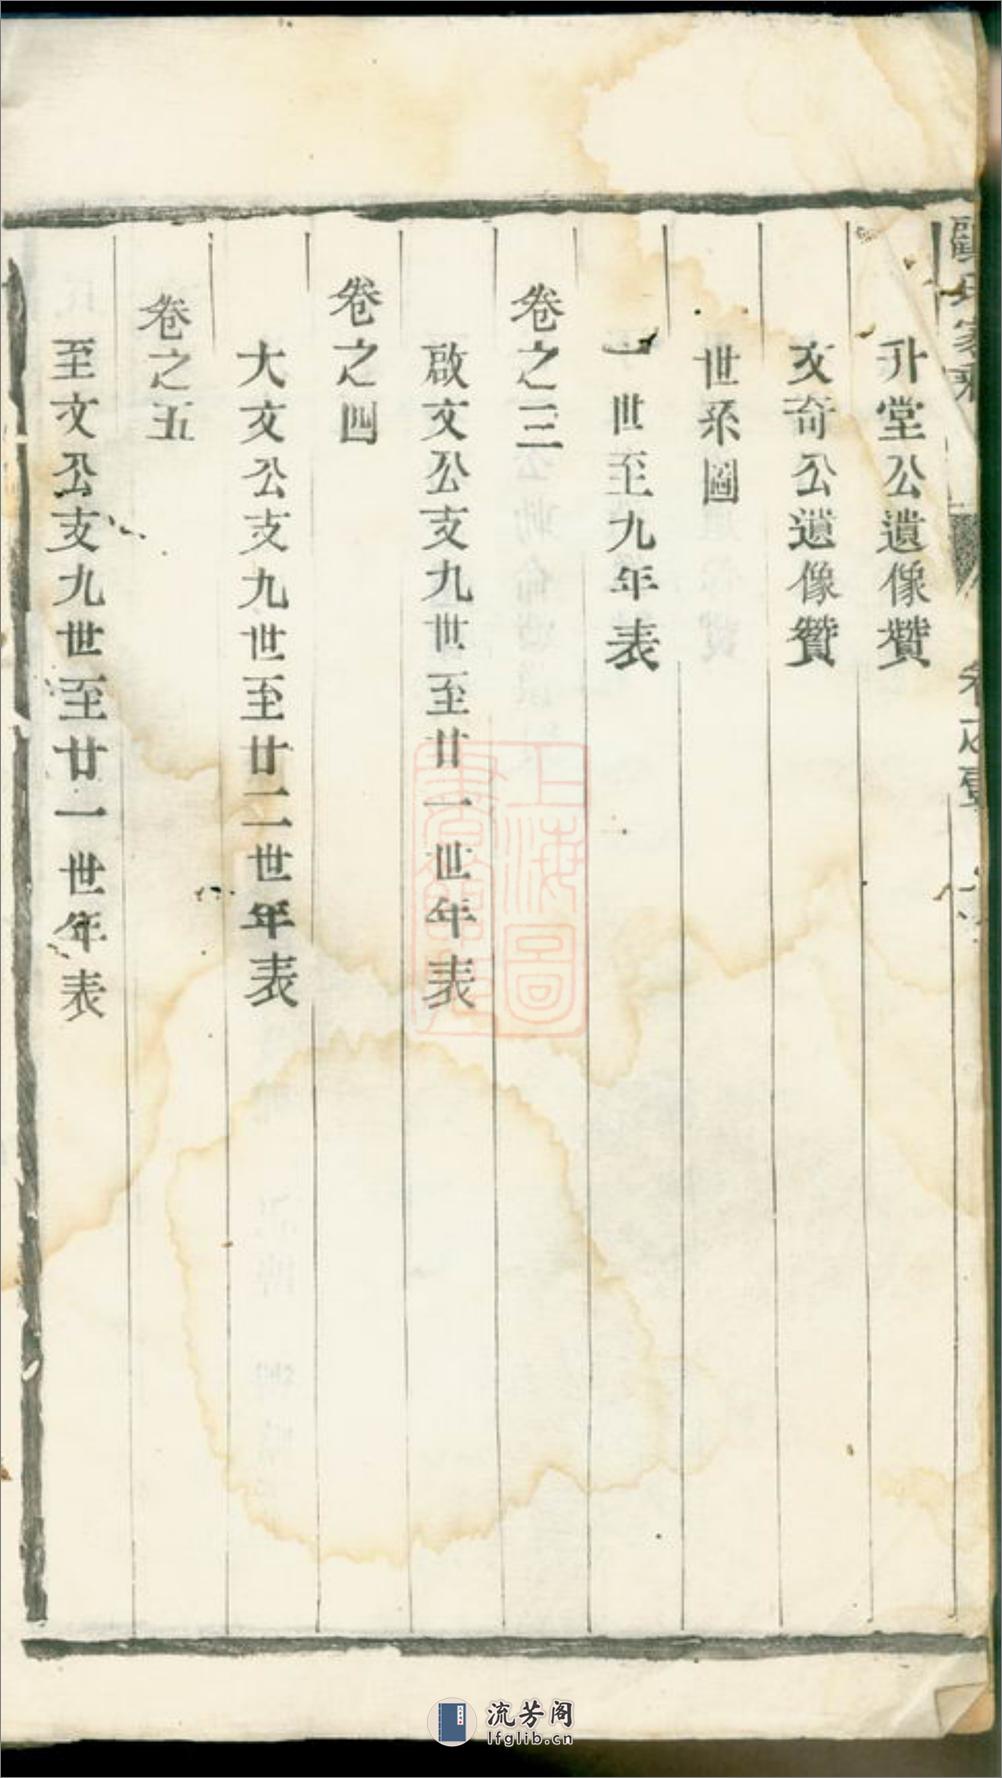 升堂公遺像贊
文奇公遺像贊
世系圖
一世至九年表
卷之三
啟文公支九世至廿一世年表
卷之四
大文公支九世至廿二世年表
卷之五
至文公支九世至廿一世年表
上海圖
書館藏
流芳阁
lfglib.cn